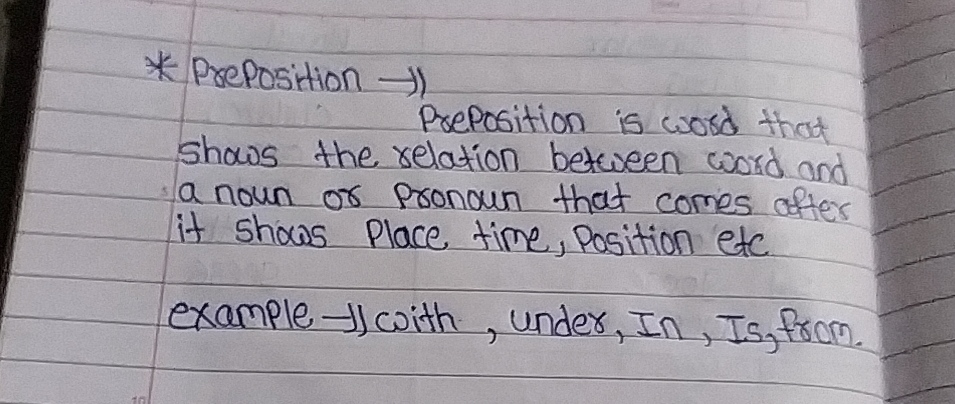 * Preposition →))
Preposition is word that
shows the relation between word and
a noun or pronoun that comes after
it shows Place time, Position etc
example →)) with , under, In , Is, from.